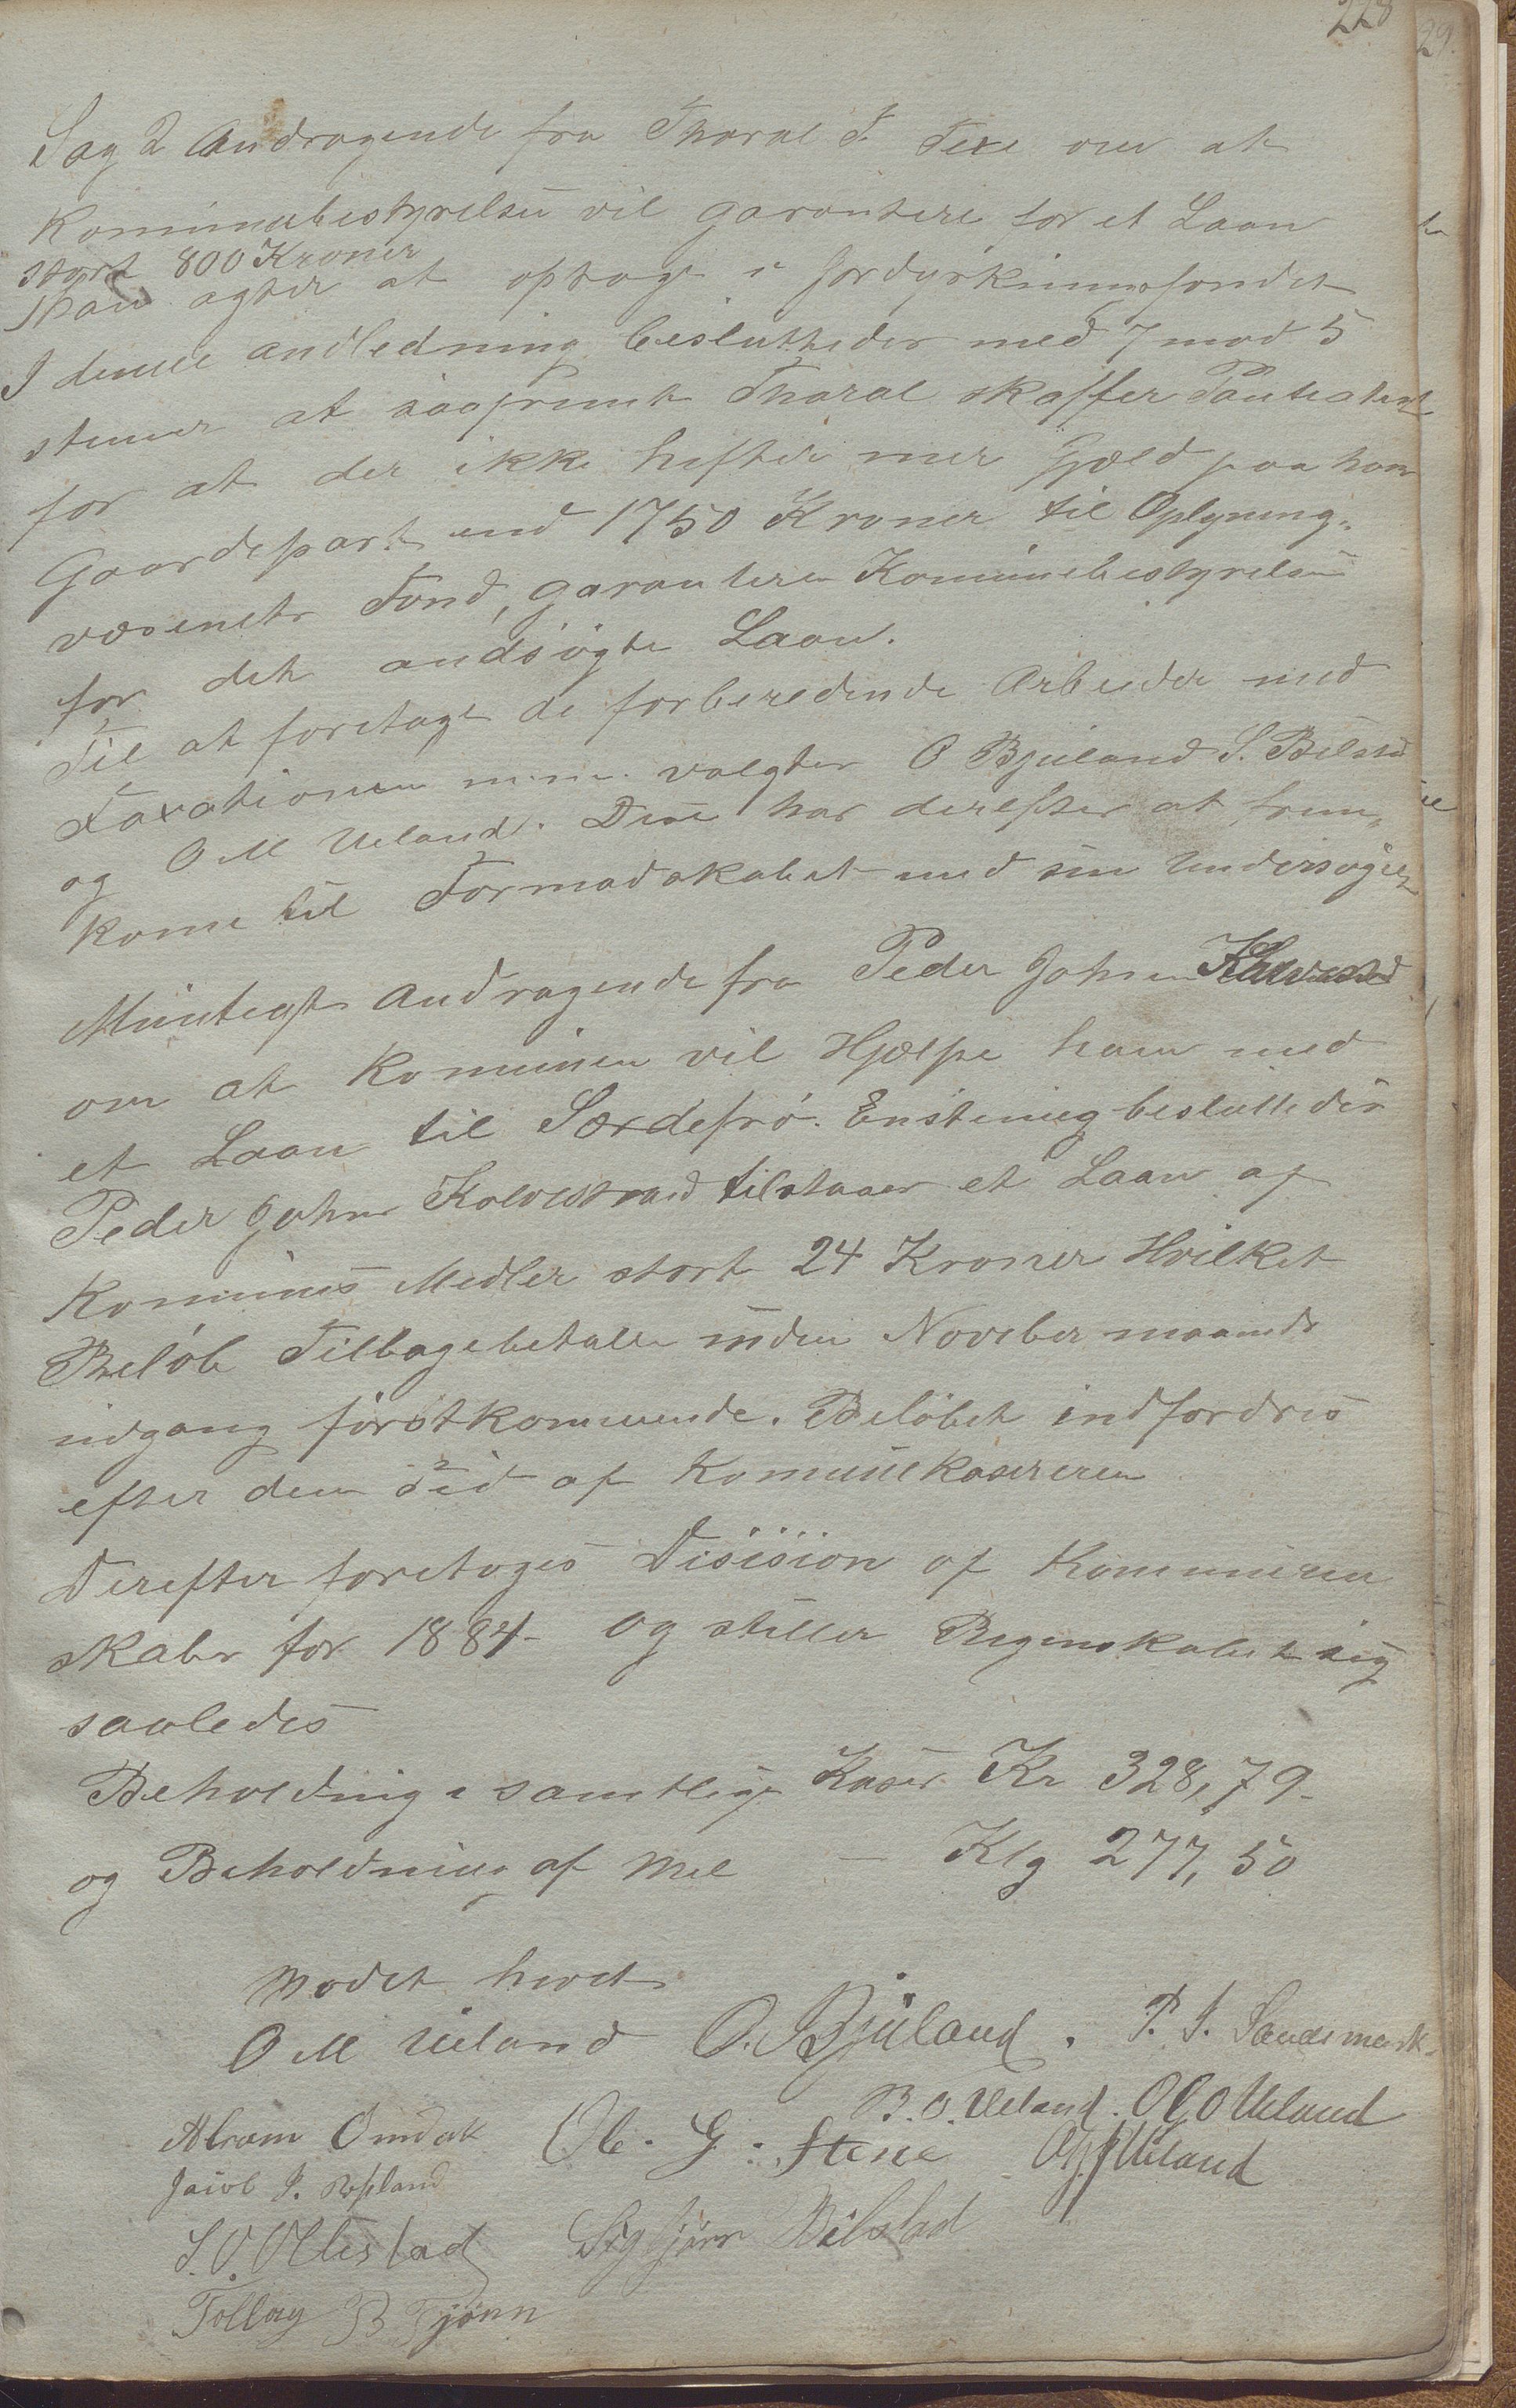 228
29.
Sag 2 Andragende fra Tharal T. Texe om at
Kommunebestyrelsen vil garantere for et Laan
stort 800 Kroner
Han agter at optage i Jordyrkningsfondet
I denne andledning besluttedes med 7 mod 5
stemer at saafremt Tharal skaffer Panteatest
for at der ikke hefter mer Gjæld paa hans
Gaardepart end 1750 Kroner til Oplysning-
væsenets Fond, garanterer Komunebestyrelsen
for det andsøgte Laan.
Til at foretage de forberedende Arbeider med
Taxationen m.m. valgtes O Bjuland S. Bilstad
og O M Ueland. Disse har derefter at frem-
kome til Formadskabet med sin Undersøgelse
Muntligt Andragende fra Peder Johnsen
om at Komunen vil Hjælpe ham med
et Laan til Sædefrø. Enstemig besluttedes
Peder Johns Kolvestrand tilstaaes et Laan af
Komunes Midler stort 24 Kroner Hvilket
Beløb Tilbagebetales inden Noveber maaneds
udgang førstkommende. Beløbet indfordres
efter den Tid af Komunekassereren
Derefter foretoges Disision af Kommuneren
skaber for 1884- og stiller Regenskabet sig
saaledes
Beholdning i samtlige Kaser Kr 328,79-
og Beholdning af Mel — Klg 277,50
Mødet hævet
O M Ueland O. Bjuland. P. J. Sandsmark.
B. O. Ueland. O G O Ueland
Abram Omdal Ole. G. Stene O G Ueland
Jacob J. Repland
S. O. Ollestad Sigbjørn Bilstad
Tollag B Tjønn